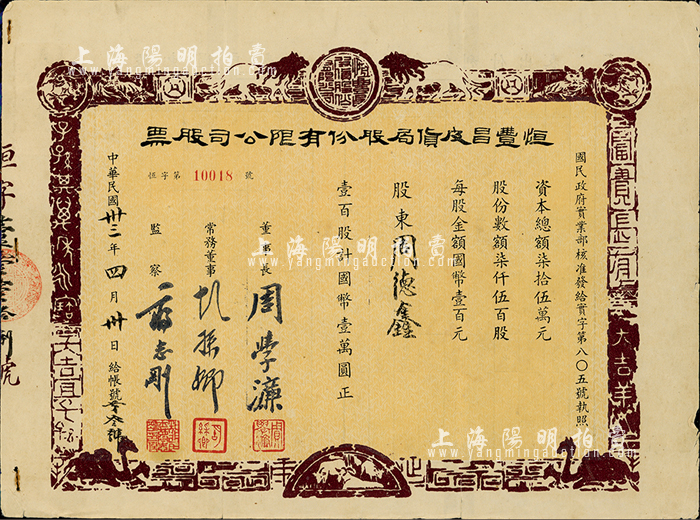 上海陽明拍賣
恒豐昌皮貨局股份有限公司股票
國民政府實業部核准發給實字第八〇五號執照
資本總額柒拾伍萬元
股份數額柒仟伍百股
每股金額國幣壹百元
股東周德鑫
壹百股計國幣壹萬圓正
董事長 周學濂
常務董事
監察 志剛
恒字第 10018 號
中華民國卅三年四月卅日給帳號
上海陽明拍賣
www.yangmingauction.com
上海陽明拍賣
www.yangmingauction.com